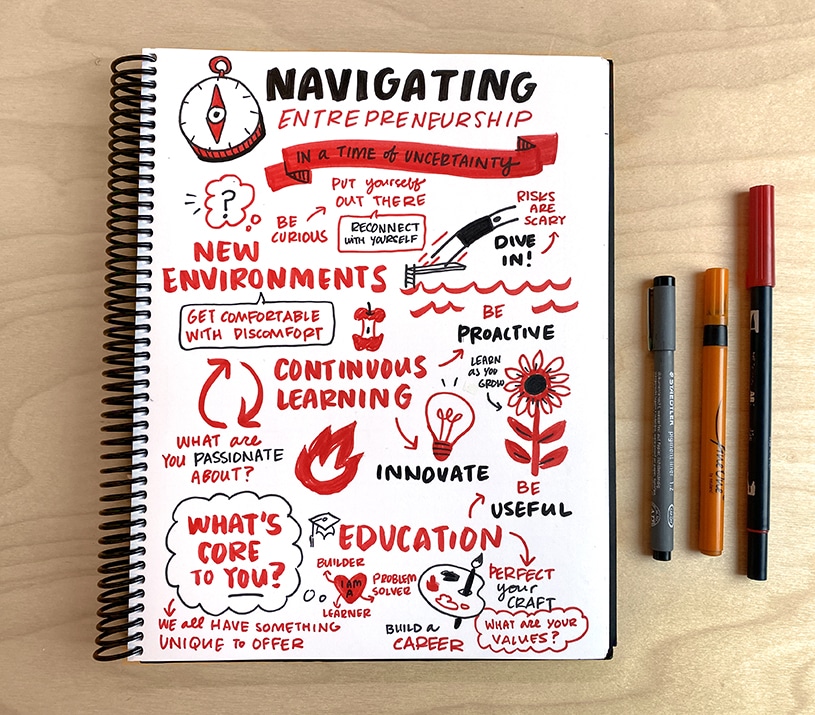 NAVIGATING
ENTREPRENEURSHIP
IN a TIME of UNCERTAINTY
?
BE
CURIOUS
PUT yourself
OUT THERE
RECONNECT
WITH YOURSELF
RISKS
ARE
SCARY
DIVE
IN!
NEW
ENVIRONMENTS
GET COMFORTABLE
WITH DISCOMFORT
BE
PROACTIVE
CONTINUOUS
LEARNING
LEARN
as YOU
GROW
WHAT are
YOU PASSIONATE
ABOUT?
INNOVATE
BE
USEFUL
WHAT'S
CORE
TO YOU?
EDUCATION
BUILDER
I AM
A
PROBLEM
SOLVER
LEARNER
PERFECT
your
CRAFT
WE all HAVE SOMETHING
UNIQUE to OFFER
BUILD a
CAREER
WHAT are YOUR
VALUES?
STAEDTLER
pigment liner 1.2